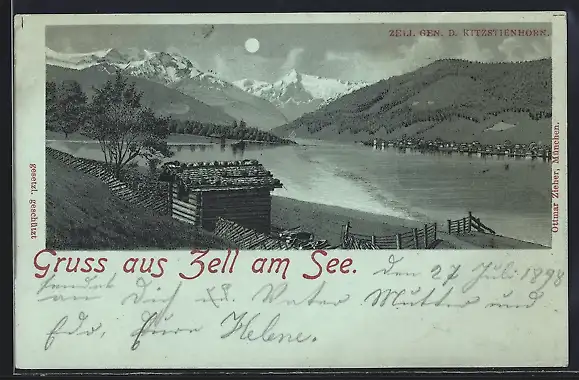 ZELL GEN. D. KITZSTIENHORN.
gesetzl. geschützt
Ottmar Zieher, München.
Gruss aus Zell am See.
Den 27 Juli 1898
sendet
an Dich Vater Mutter und
Edv, Eure Helene.